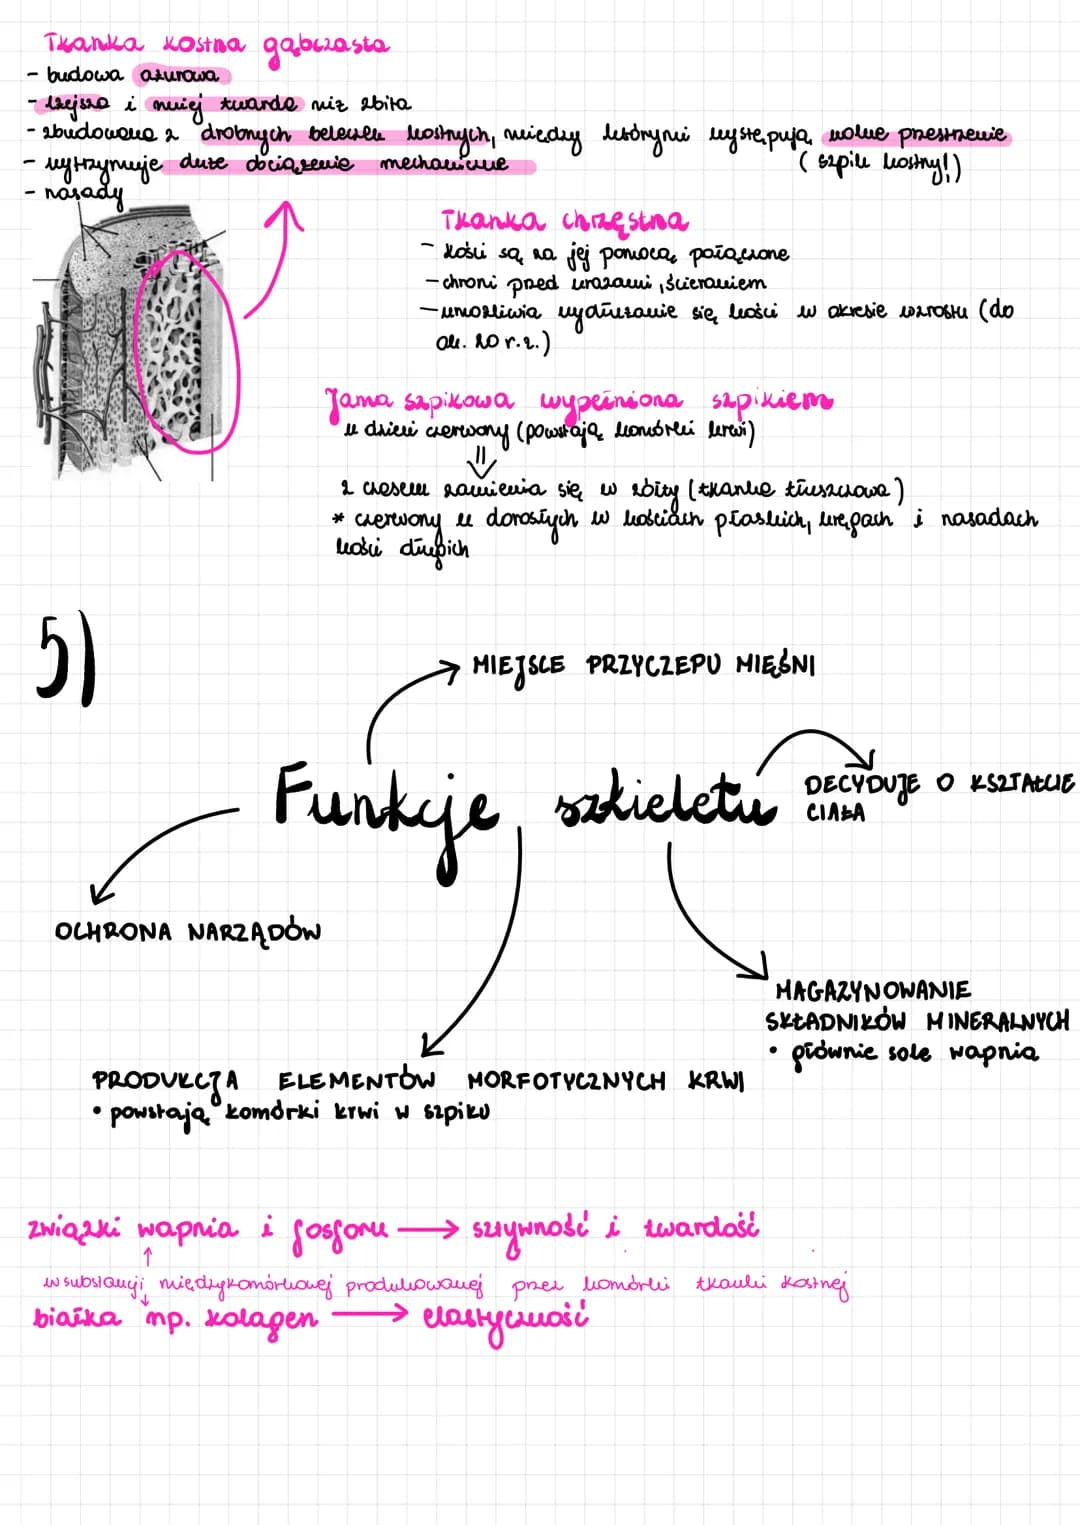 Tkanka kostna gąbczasta
- budowa ażurowa
- lżejsza i mniej twarda niż zbita
- zbudowana z drobnych beleczek kostnych, między którymi występują wolne przestrzenie
( szpik kostny!)
- wytrzymuje duże obciążenie mechaniczne
- nasady
Tkanka chrzęstna
- kości są za jej pomocą połączone
- chroni przed urazami, ścieraniem
- umożliwia wydłużanie się kości w okresie wzrostu (do
ok. 20 r.ż.)
Jama szpikowa wypełniona szpikiem
u dzieci czerwony (powstają komórki krwi)
z czasem zamienia się w żółty (tkanka tłuszczowa)
* czerwony u dorosłych w kościach płaskich, kręgach i nasadach
kości długich
5)
MIEJSCE PRZYCZEPU MIĘŚNI
Funkcje szkieletu
DECYDUJE O KSZTAŁCIE
CIAŁA
OCHRONA NARZĄDÓW
MAGAZYNOWANIE
SKŁADNIKÓW MINERALNYCH
• głównie sole wapnia
PRODUKCJA ELEMENTÓW MORFOTYCZNYCH KRWI
• powstają komórki krwi w szpiku
związki wapnia i fosforu → sztywność i twardość
w substancji międzykomórkowej produkowanej przez komórki tkanki kostnej
białka np. kolagen → elastyczność